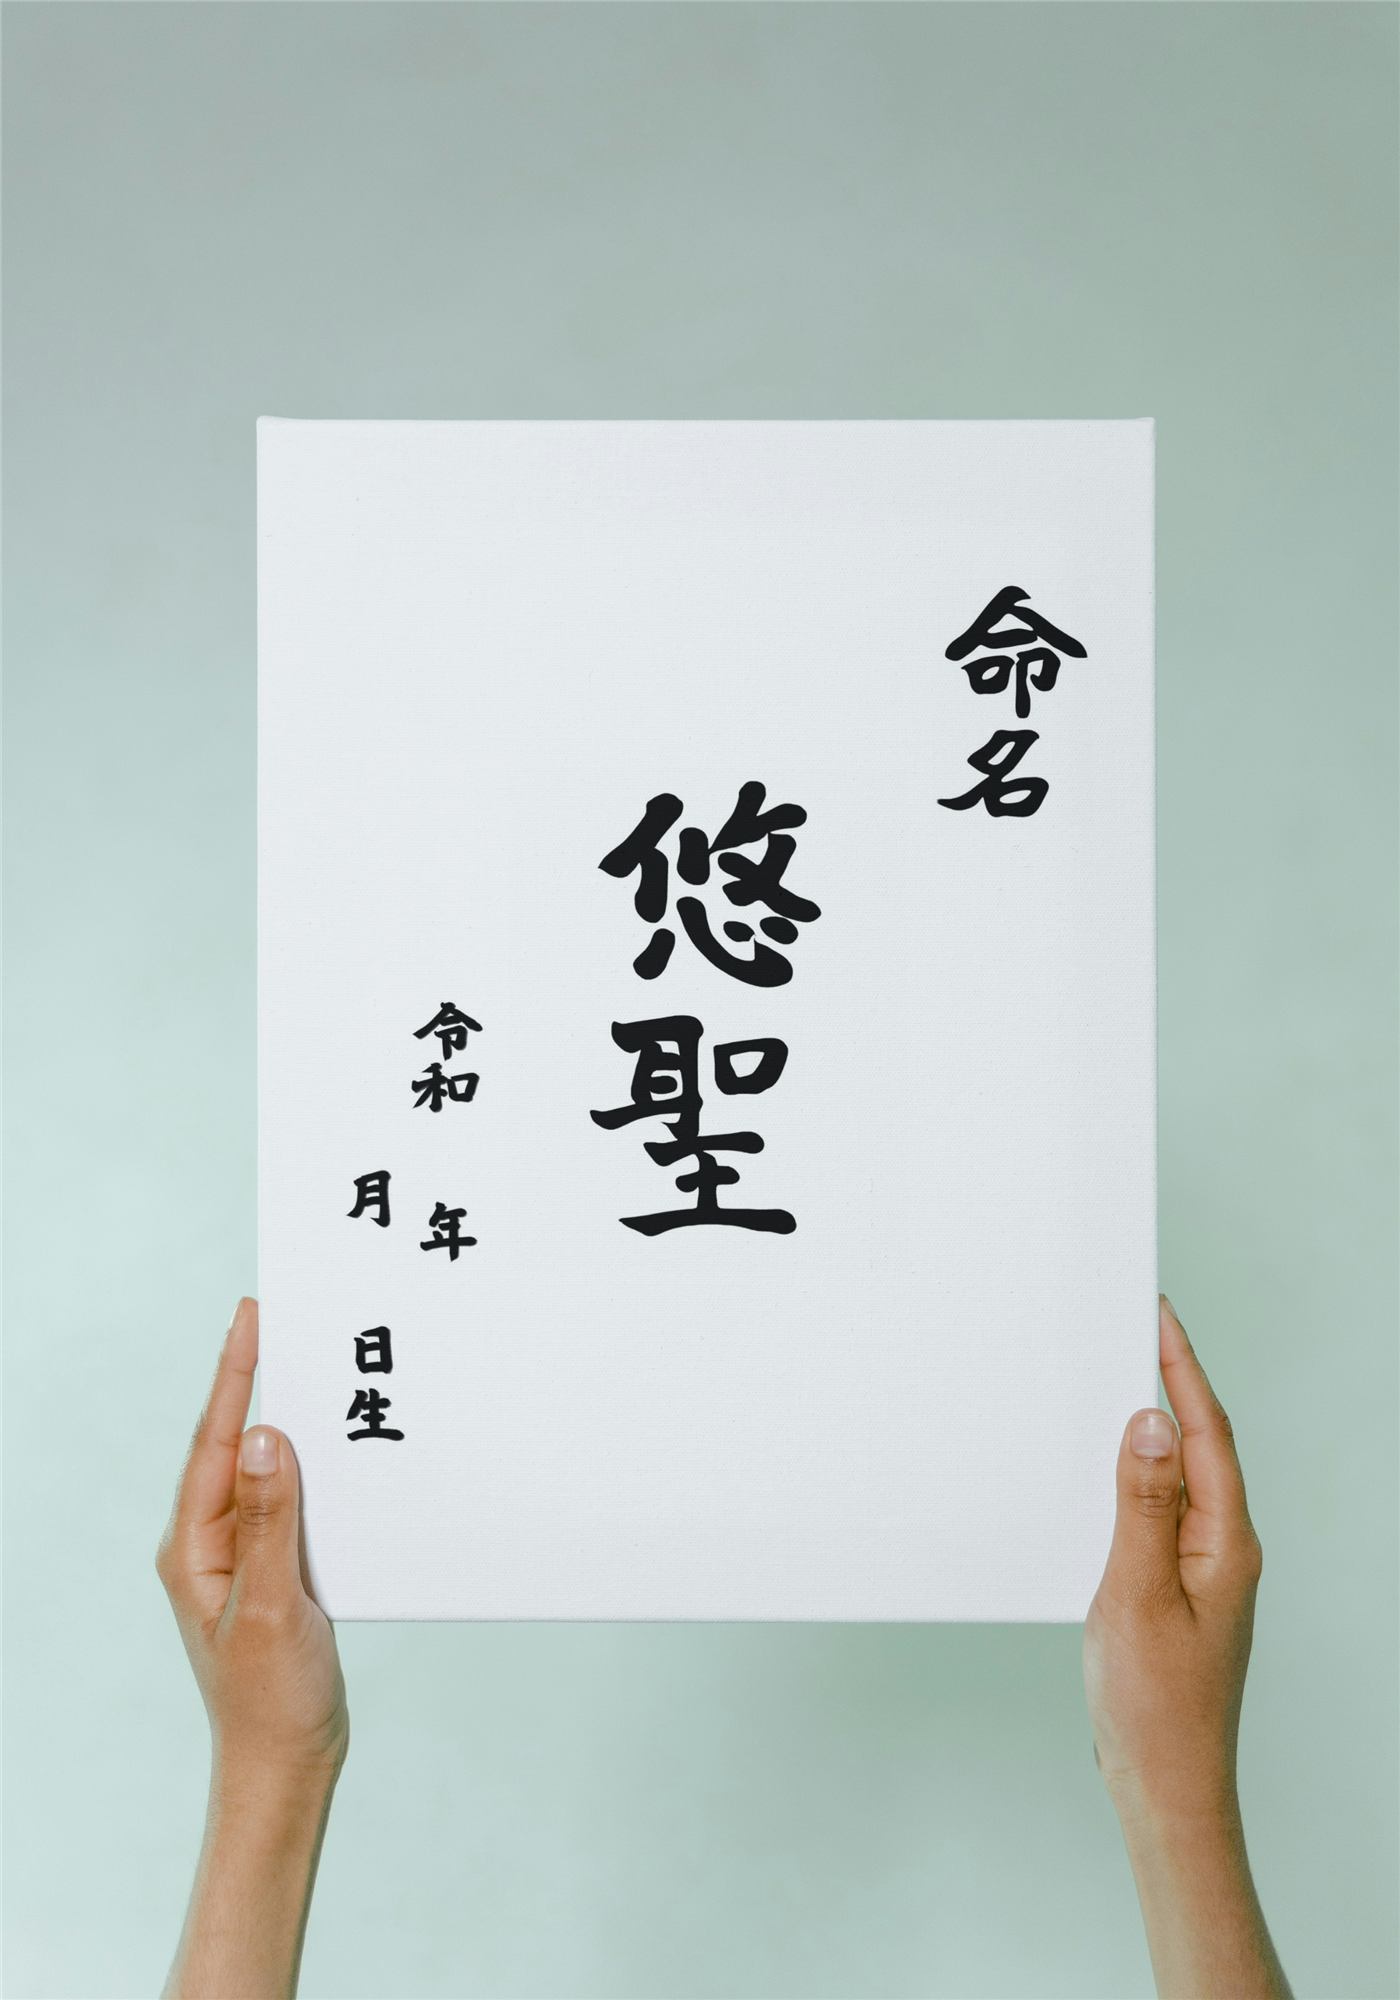 命名
悠聖
令和 年
月 日生